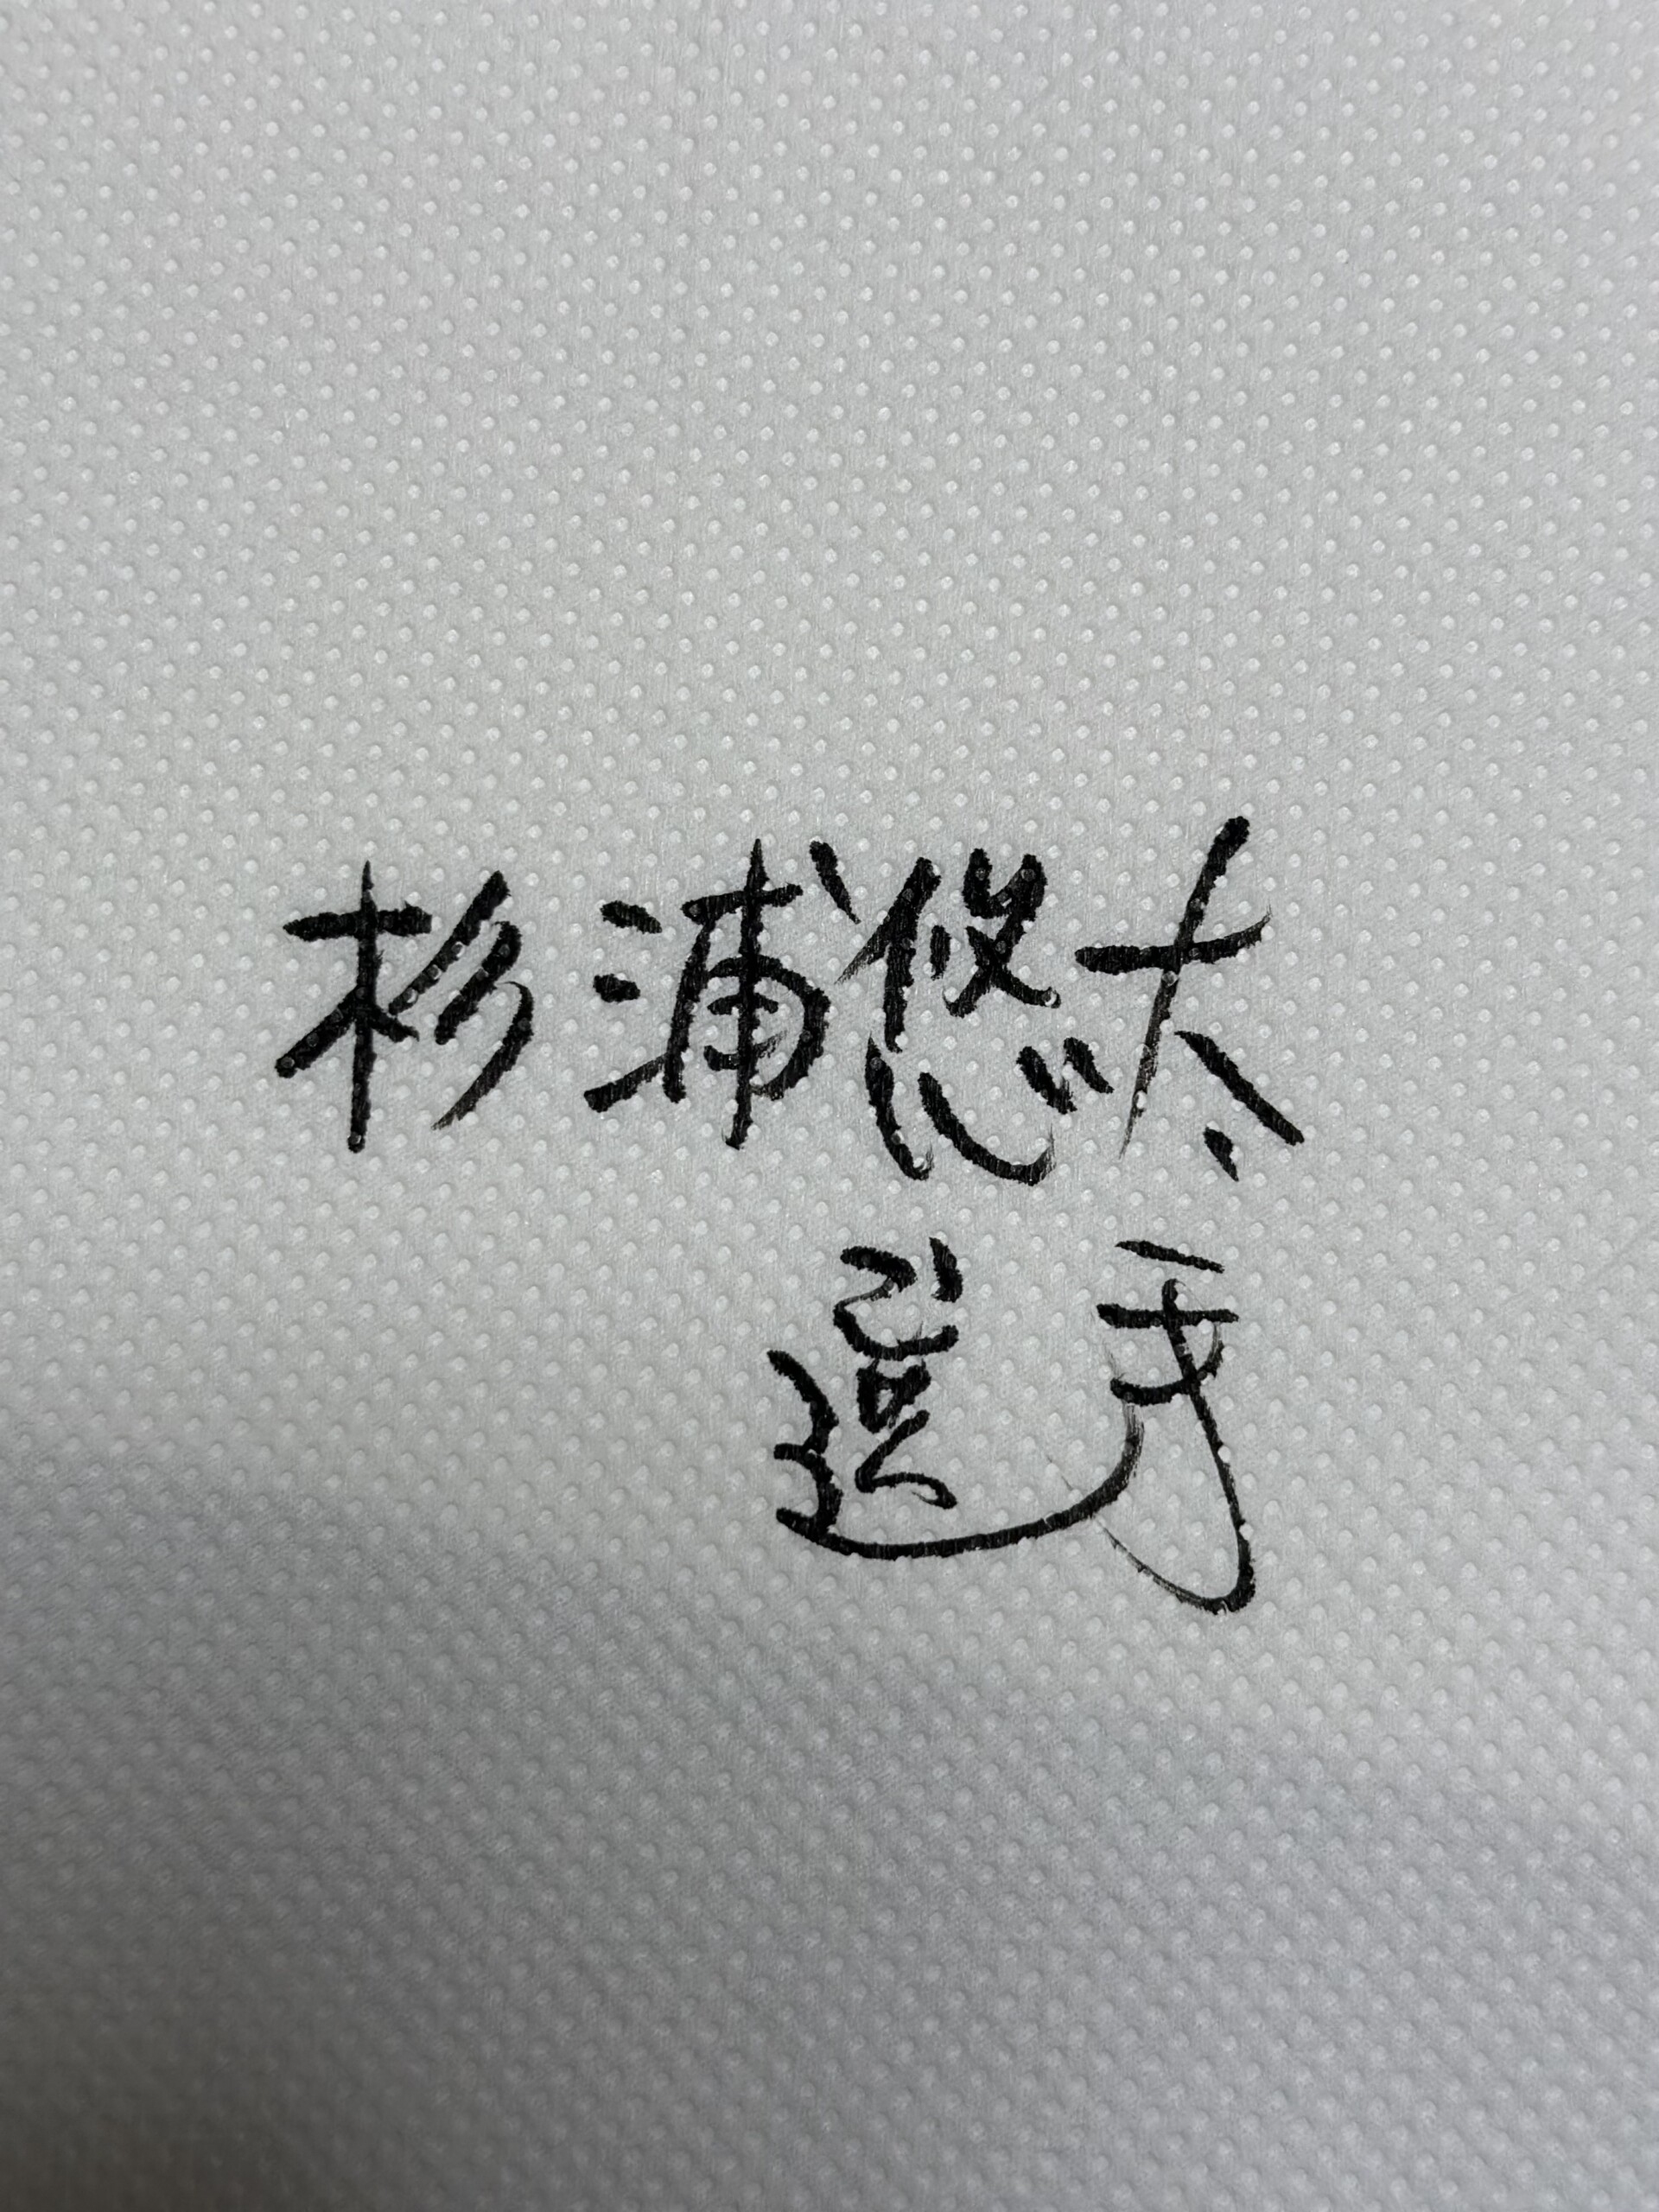 杉浦悠太
選手